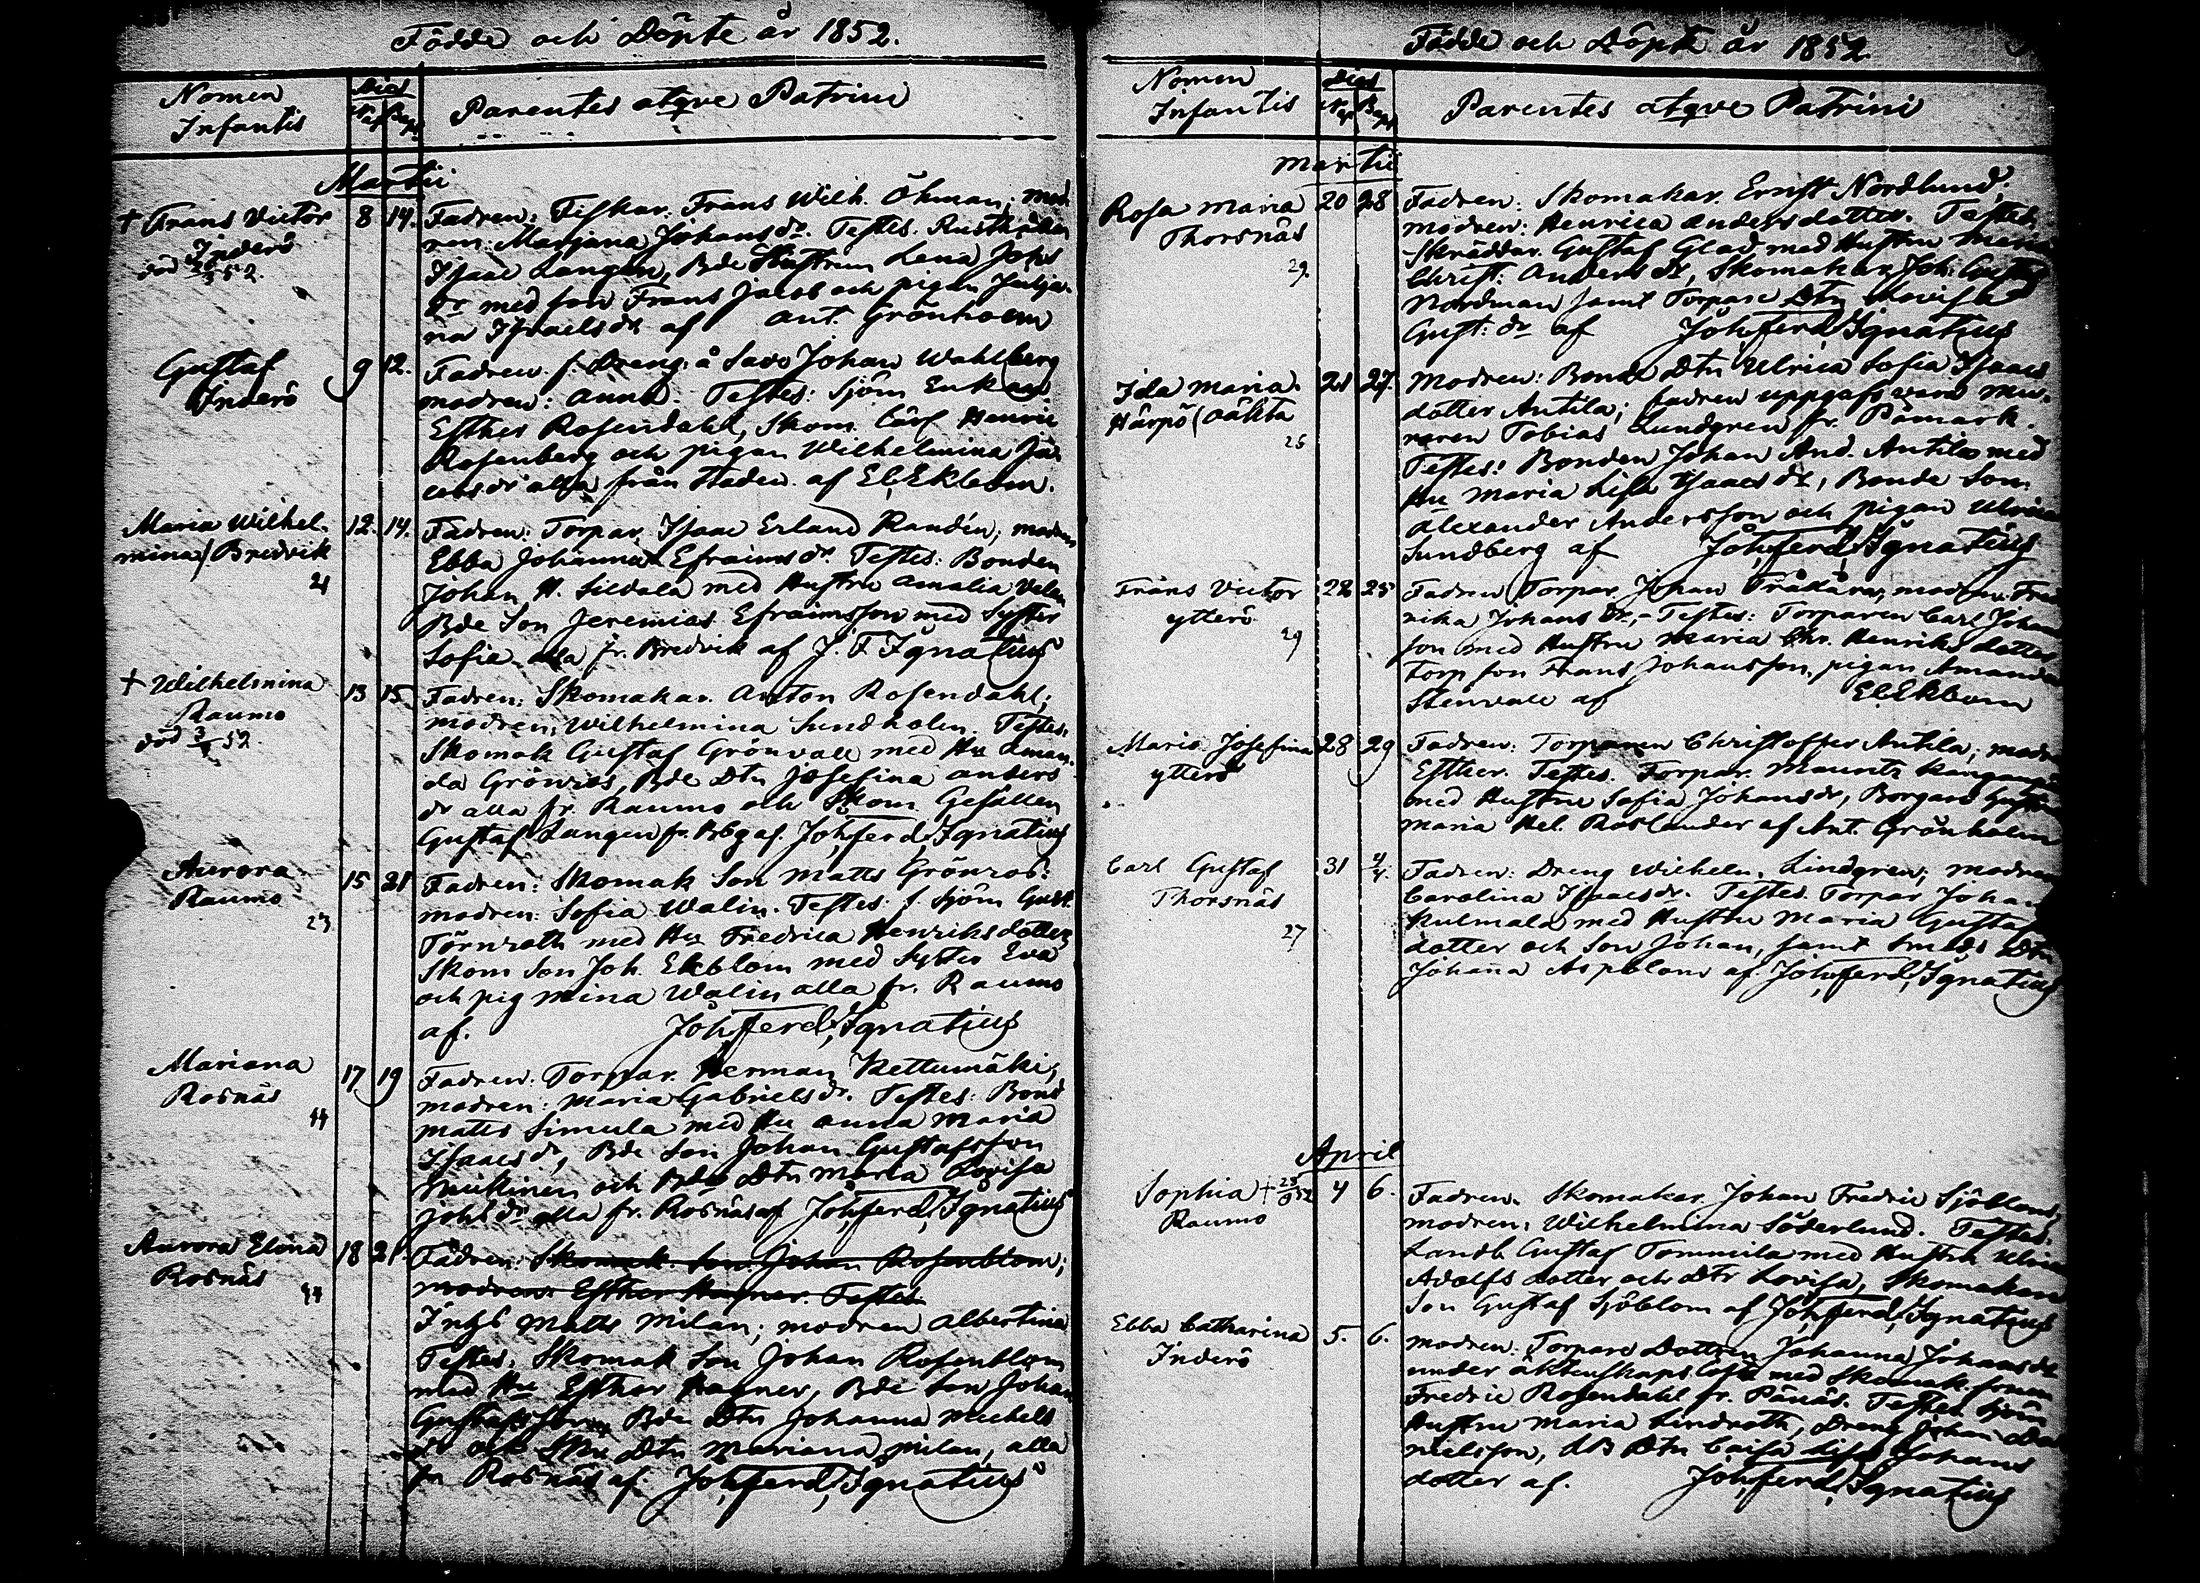 Födde och Döpte år 1852.
Nomen Infantis
Dies
Nat Bapt
Parentes atqve Patrini
Martii
+ Frans Victor
Inderö
död 52.
8 14.
Fadren: Fiskar. Frans Wilh. Öhman; mod-
ren: Marjana Johansdr. Testes. Rusthållar
Isaac Langen, Bde Hustrun Lena Johs
dr med son Frans Jacob och pigan Julja-
na Israelsdr af Ant. Grönholm
Gustaf
Inderö
9 12.
Fadren f. Dreng. å Savo Johan Wahlberg
modren: Anna. Testes: Sjöm Enkan
Esther Rosendahl, Skom. Carl Henric
Rosenberg och pigan Wilhelmina Ja-
cobsdr alla från staden. af El. Ekblom.
Maria Wilhel-
mina / Bredvik
21
12. 14.
Fadren: Torpar. Isaac Erland Randin; modren
Ebba Johanna Efraimsdr. Testes: Bonden
Johan H. Silvala med Hustru Amalia
Bde Son Jeremias Efraimsson med Syster
Sofia alla fr. Bredvik af J. F. Ignatius
+ Wilhelmina
Raumo
död 52.
13 15
Fadren: Skomakar. Anton Rosendahl;
modren: Wilhelmina Sundholm, Testes.
Skomak Gustaf Grönvall med Hu Aman-
da Grönros, Bde Dtn Josefina Anders
dr alla fr. Raumo och Skom Gesällen
Gustaf Langen fr. Bbg af. Joh, ferd, Ignatius
Aurora
Raumo
23
15 21
Fadren: Skomak Son Matts Grönros:
modren: Sofia Walin. Testes: f. Sjöm Gust.
Törnroth med Hu Fredrica Henriksdotter
Skom Son Joh. Ekblom med Syster Eva
och pig Mina Walin alla fr. Raumo
af. Joh, ferd, Ignatius
Mariana
Rosnäs
44
17 19
Fadren: Torpar. Herman Kettumäki;
modren: Maria Gabrielsdr. Testes: Bond
Matts Simula med Hu Anna Maria
Isaacsdr, Bde Son Johan Gustafsson
och Bde Dtn Maria Lovisa
Johsdr alla fr. Rosnäs af Joh, ferd, Ignatius
Aurora Elina
Rosnäs
44
18 21.
Fadren: Skomak. Son Johan Rosenblom;
modren: Esther Hagner. Testes:
Matts Milan; modren Albertina
Testes. Skomak Son Johan Rosenblom
med Hu Esther Hagner, Bde Son Johan
Gustafsson, Bde Dtn Johanna Michels
dr och Dtn Mariana Milan, alla
fr Rosnäs af. Joh, ferd, Ignatius
Födde och Döpte år 1852.
Nomen
Infantis
Dies
Nat Bapt
Parentes atqve Patrini
Martii
Rosa Maria
Thorsnäs
29.
20 28
Fadren: Skomakar. Ernst Nordlund;
modren: Henrica Andersdotter. Testes.
Skräddar. Gustaf Glad med Hustru Maria
Christ: Andersdr, Skomakar Joh: Gustaf
Nordman samt Torpare Dtn Lovisa
Gust: dr af Joh, ferd, Ignatius
Ida Maria.
Härpö (Oähta
25
21 27.
Modren: Bonde Dtn Ulrica Sofia Isaacs
dotter Antila; fadren uppgafs vara mu-
raren Tobias Lundgren fr. Påmark.
Testes: Bonden Johan And. Antila med
Hu Maria Lisa Isaacsdr, Bonde Son
Alexander Andersson och pigan Ulrica
Sundberg af Joh, ferd, Ignatius
Frans Victor
ytterö
29
22 25
Fadren Torpar. Johan Träskäri, modren: Fred
rika Johans Dr, - Testes: Torparen Carl Johans
son med Hustru Maria Chr. Henriksdotter
Torp son Frans Johansson, pigan Amanda
Stenvall af El. Ekblom
Maria Josefina
ytterö
28 29
Fadren: Torparen Christoffer Antila; modr
Esther. Testes. Torpar. Mauritz
med Hustru Sofia Johansdr, Borgare Hustru
Maria Hel. Roslander af Ant. Grönholm
Carl Gustaf
Thorsnäs
27
31 4/4.
Fadren: Dreng Wilhelm. Lindgren; modren
Carolina Isaacsdr. Testes. Torpar Johan
Kulmala med Hustru Maria Gustafs
dotter och Son Johan, samt Smeds Dtn
Johanna Aspblom af. Joh, ferd, Ignatius
April
Sophia + 52
Raumo
4 6.
Fadren. Skomakar. Johan Fredric Sjöblom,
modren: Wilhelmina Söderlund. Testes.
Landb. Gustaf Tommila med Hustru Ulrica
Adolfsdotter och Dtr Lovisa, Skomakare
Son Gustaf Sjöblom af Joh, ferd, Ignatius
Ebba Catharina
Inderö
5. 6.
Modren: Torpare Dottren Johanna Johansdr
under äktenskaps löfte med Skomak. sonen
Fredric Rosendahl fr. Pånäs. Testes Sjöm
Hustru Maria Lindroth, Dreng Johan Da-
nielsson, Dtn Caisa Lisa Johans
dotter af. Joh, ferd, Ignatius